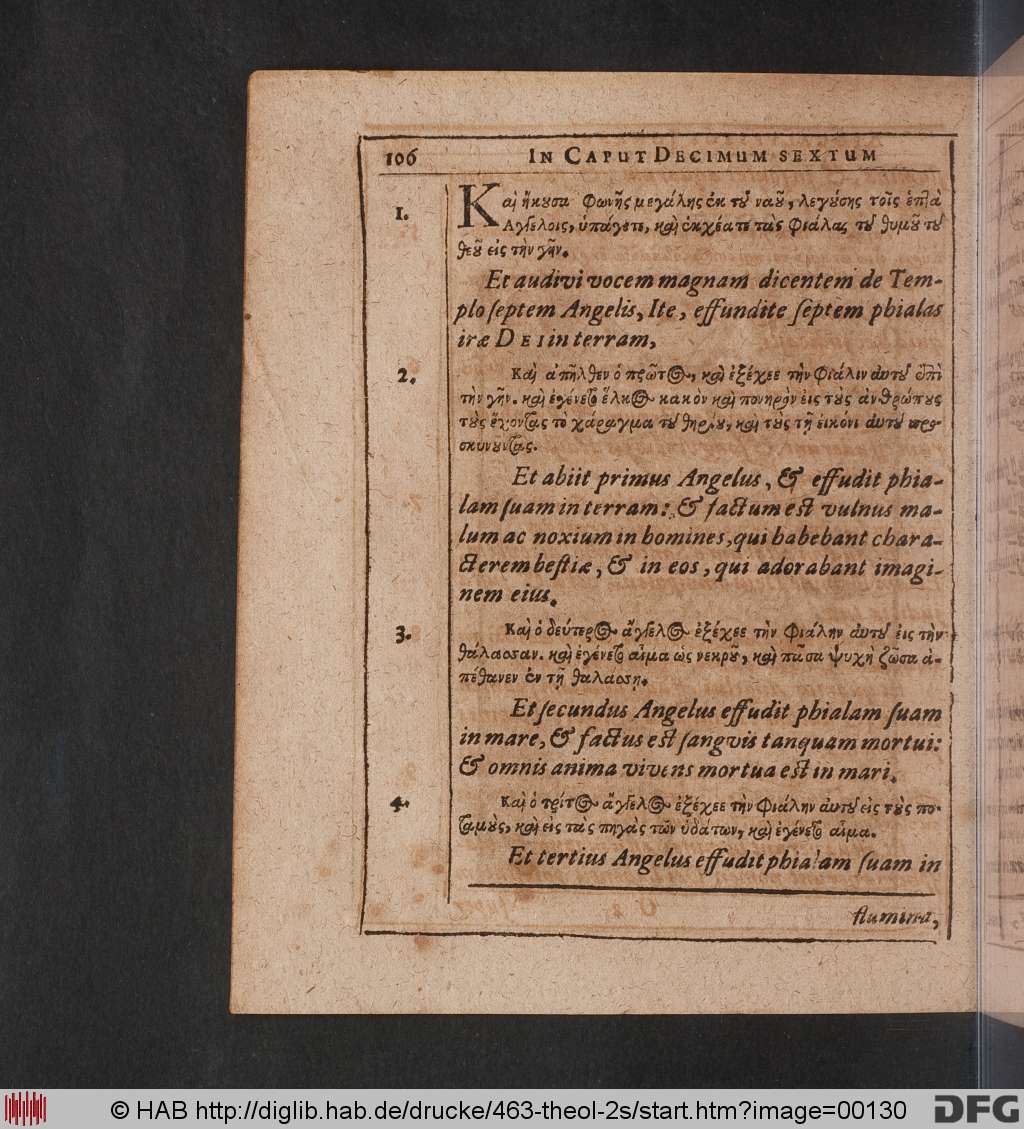 106 IN CAPUT DECIMUM SEXTUM
1. Καὶ ἤκουσα φωνῆς μεγάλης ἐκ τοῦ ναοῦ, λεγούσης τοῖς ἑπτὰ
Αγγέλοις, ὑπάγετε, καὶ ἐκχέατε τὰς φιάλας τοῦ θυμοῦ τοῦ
θεοῦ εἰς τὴν γῆν.
Et audivi vocem magnam dicentem de Tem-
plo ſeptem Angelis, Ite, effundite ſeptem phialas
iræ DEI in terram,
2. Καὶ ἀπῆλθεν ὁ πρῶτος, καὶ ἐξέχεε τὴν φιάλιν αυτοῦ ἐπὶ
τὴν γῆν. καὶ ἐγένετο ἕλκος κακὸν καὶ πονηρὸν εις τοὺς ἀνθρώπους
τοὺς ἔχοντας τὸ χάραγμα τοῦ θηρίου, καὶ τοὺς τῇ εικόνι αυτοῦ προσ-
σκυνουντας.
Et abiit primus Angelus, & effudit phia-
lam ſuam in terram: & factum est vulnus ma-
lum ac noxium in homines, qui habebant chara-
cterem beſtiæ, & in eos, qui adorabant imagi-
nem eius.
3. Καὶ ὁ δεύτερος ἄγγελος ἐξέχεε τὴν φιάλην αυτοῦ εις τὴν
θάλασσαν. καὶ εγένετο αἷμα ὡς νεκροῦ, καὶ πᾶσα ψυχὴ ζῶσα ἀ-
πέθανεν ἐν τῇ θαλάσσῃ.
Et ſecundus Angelus effudit phialam ſuam
in mare, & factus est ſangvis tanquam mortui:
& omnis anima vivens mortua est in mari.
4. Καὶ ὁ τρίτος ἄγγελος ἐξέχεε τὴν φιάλην αυτοῦ εἰς τοὺς πο-
ταμοὺς, καὶ εἰς τὰς πηγὰς τῶν ὑδάτων, καὶ ἐγένετο αἷμα.
Et tertius Angelus effudit phialam ſuam in
flumina,
© HAB http://diglib.hab.de/drucke/463-theol-2s/start.htm?image=00130 DFG